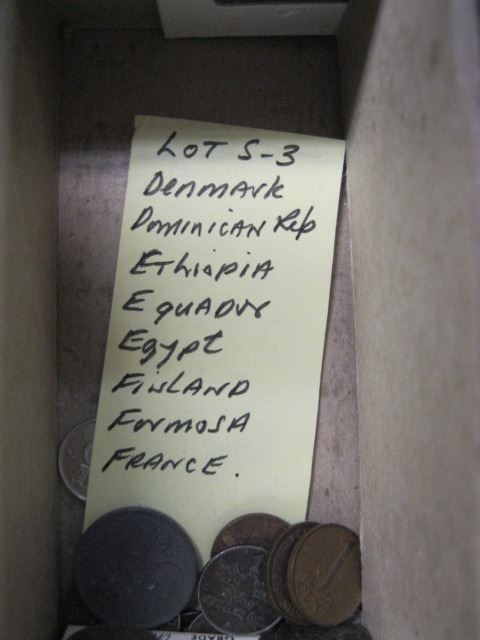 LOT S-3
Denmark
Dominican Rep
Ethiopia
Equador
Egypt
Finland
Formosa
France.
GRADE